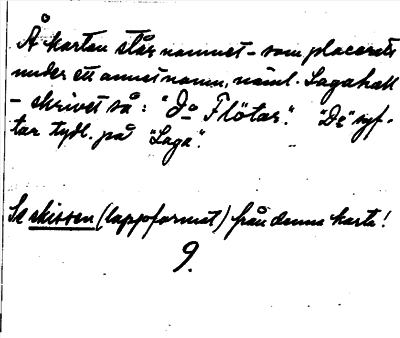 Å kartan står namnet – som placerats
under ett annat namn, näml. Lagahall
– skrivet så: "Do Flötar." "Do" syf-
tar tydl. på "Laga".
Se skissen (lappformat) från denna karta!
9.